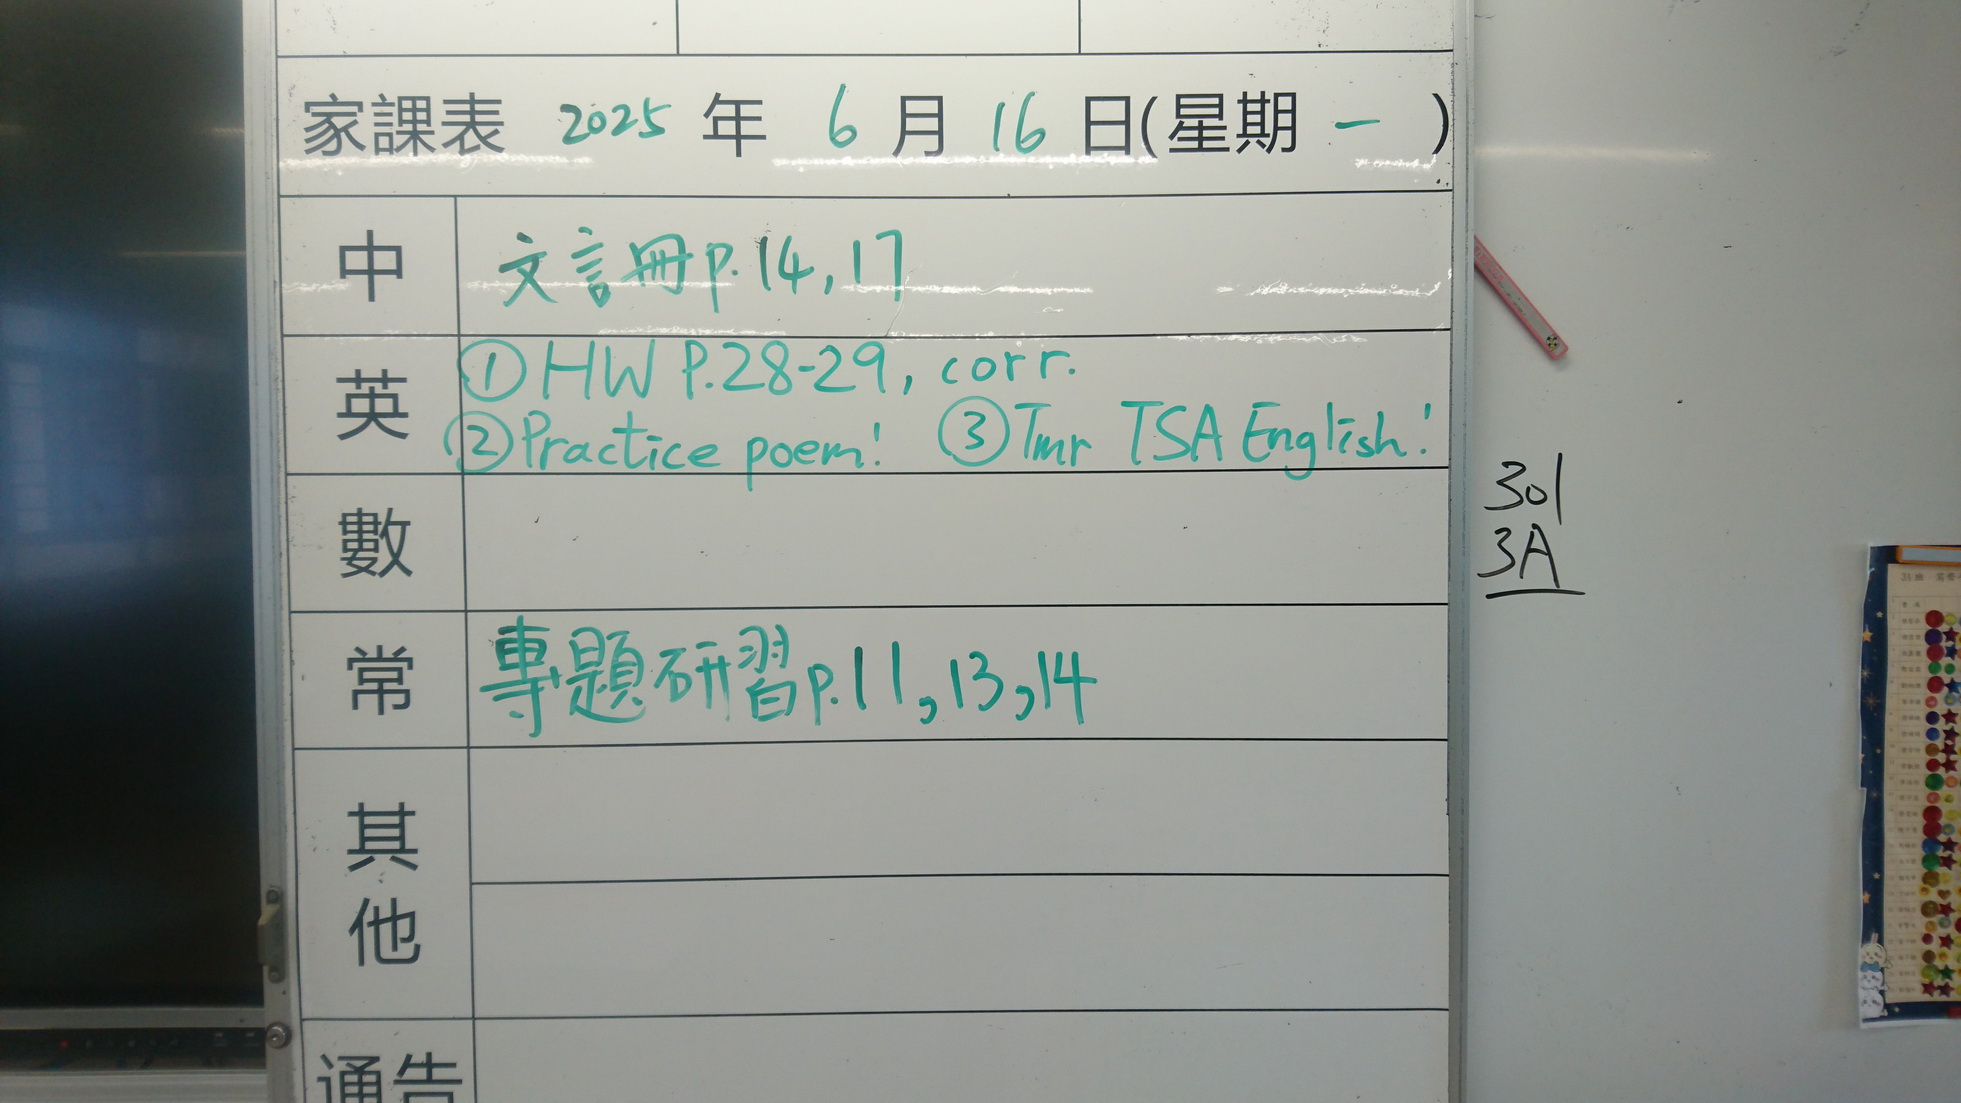 家課表 2025 年 6 月 16 日(星期 一 )
中 文言冊p.14,17
英 ①HW P.28-29, corr.
②Practice poem! ③Tmr TSA English!
數
常 專題研習p.11,13,14
其他
通告
301
3A